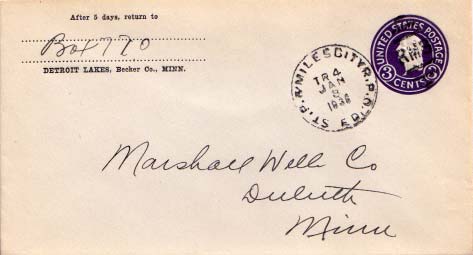 After 5 days, return to
Box 770
DETROIT LAKES, Becker Co., MINN.
ST. P. & MILES CITY R.P.O.
TR 4
JAN
1936
E.D.
UNITED STATES POSTAGE
3 CENTS 3
Marshall Wells Co
Duluth
Minn